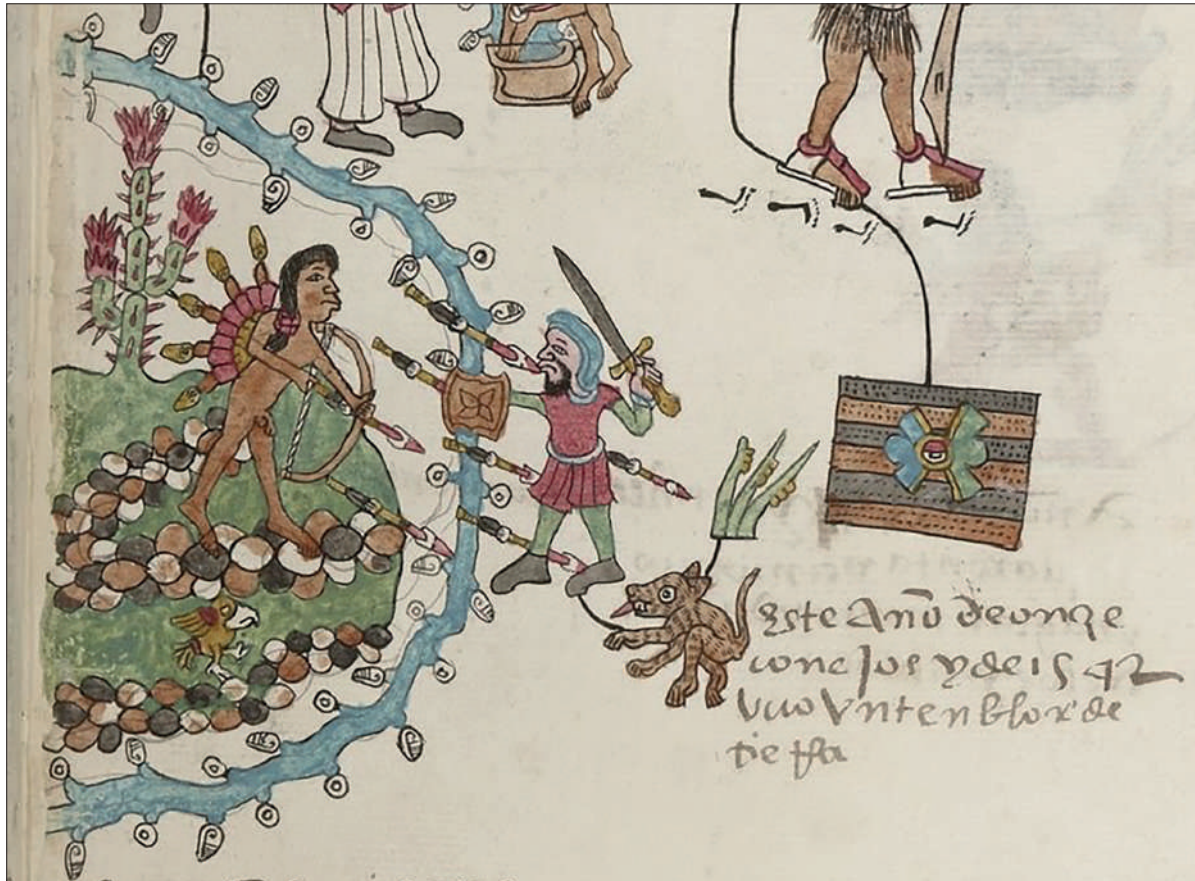 este Año de onze
conejos y de 1542
vuo vn tenblor de
tierra